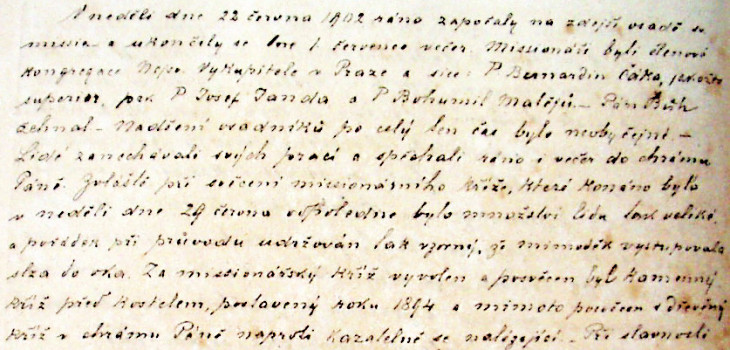 V neděli dne 22 června 1902 ráno započaly na zdejší osadě sv.
missie a ukončily se dne 1 července večer. Missionáři byli členové
Kongregace Nejsv. Vykupitele v Praze a sice: P Bernardin Čáka, jakožto
superior, pak P Josef Janda a P Bohumil Matějů. – Pán Bůh
žehnal – Nadšení osadníků po celý ten čas bylo neobyčejné. –
Lidé zanechávali svých prací a spěchali ráno i večer do chrámu
Páně. Zvláště při svěcení missionárního kříže, které konáno bylo
v neděli dne 29 června odpoledne bylo množství lidu tak veliké
a pořádek při průvodu udržován tak vzorný, že mimoděk vystupovala
slza do oka. Za missionářský kříž vyvolen a posvěcen byl kamenný
kříž před kostelem, postavený roku 1894 a mimoto posvěcen i dřevěný
kříž v chrámu Páně naproti kazatelně se nalézající. – Při slavnosti